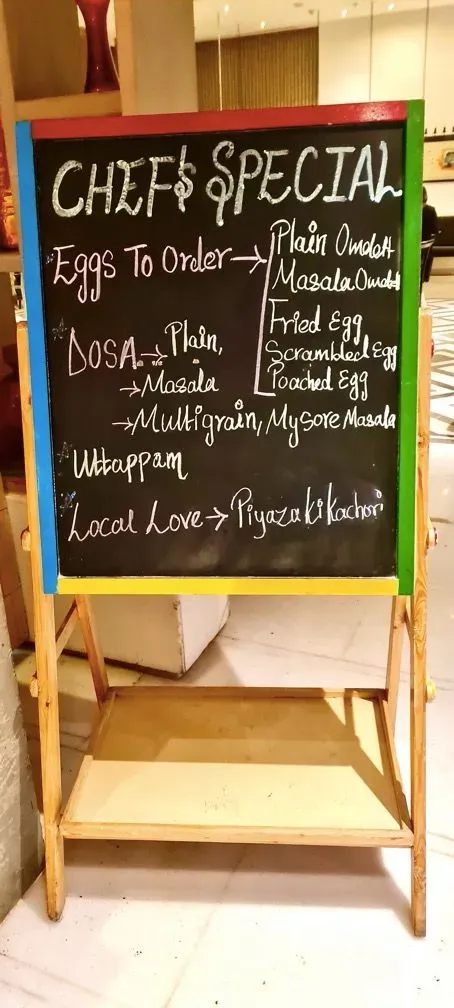 CHEF'S SPECIAL
Eggs To Order → Plain Omelett
Masala Omelett
Fried Egg
Scrambled Egg
Poached Egg
DOSA → Plain,
→ Masala
→ Multigrain, Mysore Masala
Uttappam
Local Love → Piyaza ki Kachori